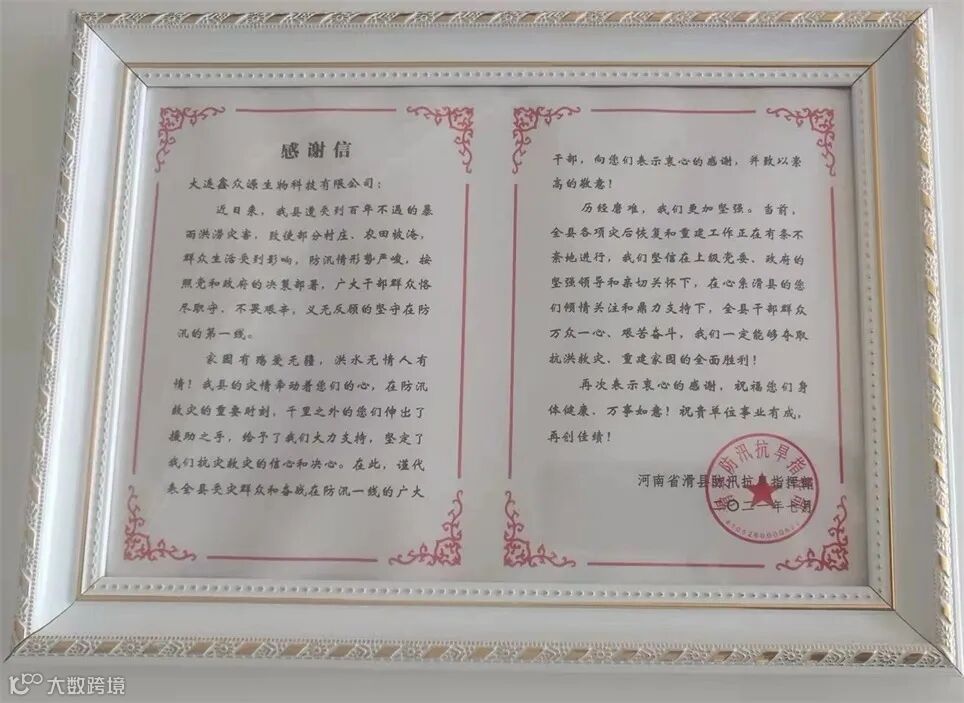 感谢信
大连鑫众源生物科技有限公司：
近日来，我县遭受到百年不遇的暴
雨洪涝灾害，致使部分村庄、农田被淹，
群众生活受到影响，防汛情形势严峻，按
照党和政府的决策部署，广大干部群众恪
尽职守、不畏艰辛，义无反顾的坚守在防
汛的第一线。
家园有殇爱无疆，洪水无情人有
情！我县的灾情牵动着您们的心，在防汛
救灾的重要时刻，千里之外的您们伸出了
援助之手，给予了我们大力支持，坚定了
我们抗灾救灾的信心和决心。在此，谨代
表全县受灾群众和奋战在防汛一线的广大
干部，向您们表示衷心的感谢，并致以崇
高的敬意！
历经磨难，我们更加坚强。当前，
全县各项灾后恢复和重建工作正在有条不
紊地进行，我们坚信在上级党委、政府的
坚强领导和亲切关怀下，在心系滑县的您
们倾情关注和鼎力支持下，全县干部群众
万众一心、艰苦奋斗，我们一定能够夺取
抗洪救灾、重建家园的全面胜利！
再次表示衷心的感谢，祝福您们身
体健康、万事如意！祝贵单位事业有成，
再创佳绩！
河南省滑县防汛抗旱指挥部
二〇二一年七月
防汛抗旱指挥部
大数跨境